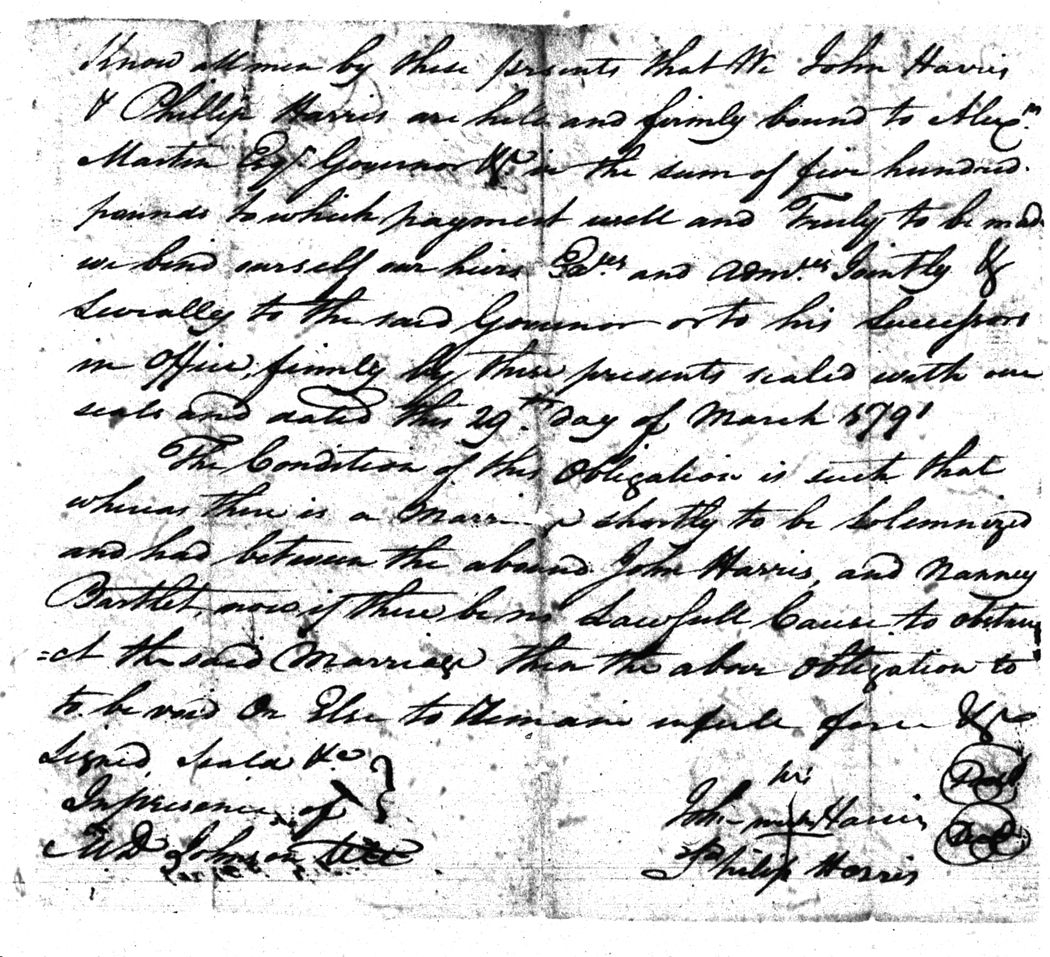 Know all men by these presents that We John Harris
& Phillip Harris are held and firmly bound to Alexr.
Martin Esqr. Governor &c. in the sum of five hundred
pounds to which payment well and Truly to be made
we bind ourself our heirs Exrs. and admrs. Jointly &
Severally to the said Governor or to his Successors
in Office, firmly by these presents sealed with our
seals and dated this 29th. Day of March 1791
The Condition of this Obligation is such that
whereas there is a Marriage shortly to be Solemnized
and had between the abound John Harris, and Nanney
Bartlet now if there be no Lawfull Cause to obstru
=ct the said Marriage then the above Obligation to
to be void Or Else to Remain in full force &c
Signed, Seald &c
In presence of
Johnson
his
John mark Harris Seal
Philip Harris Seal